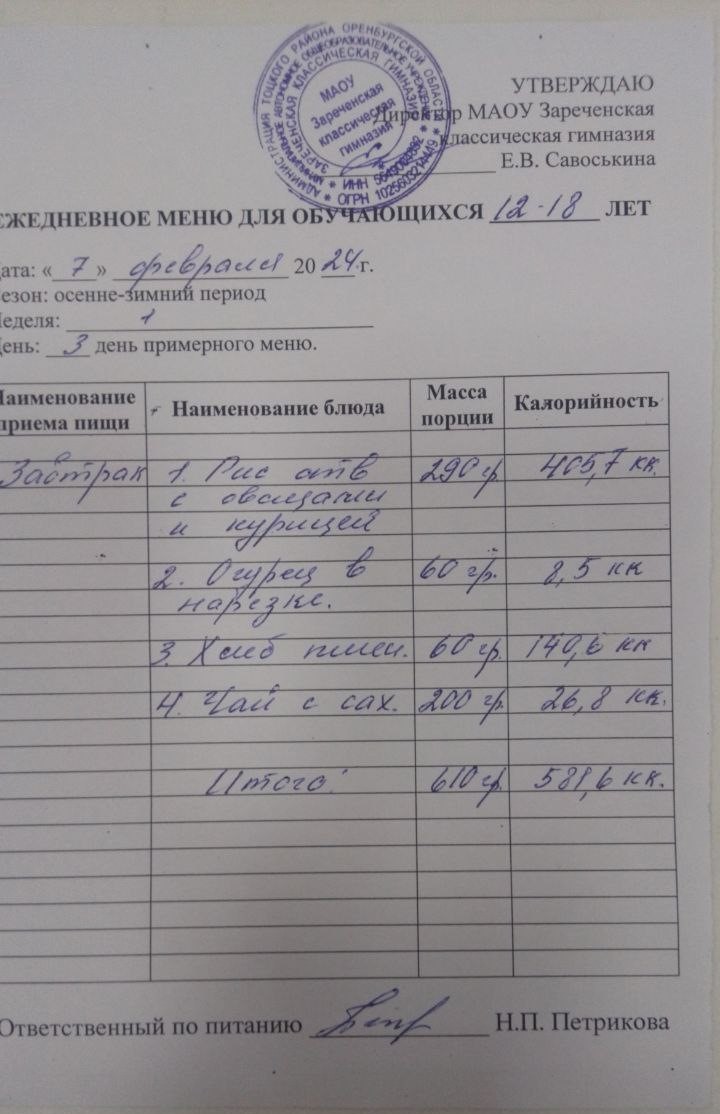 АДМИНИСТРАЦИЯ ТОЦКОГО РАЙОНА ОРЕНБУРГСКОЙ ОБЛАСТИ
МУНИЦИПАЛЬНОЕ АВТОНОМНОЕ ОБЩЕОБРАЗОВАТЕЛЬНОЕ УЧРЕЖДЕНИЕ
ЗАРЕЧЕНСКАЯ КЛАССИЧЕСКАЯ ГИМНАЗИЯ
МАОУ
Зареченская
классическая
гимназия
ИНН
ОГРН
УТВЕРЖДАЮ
Директор МАОУ Зареченская
классическая гимназия
Е.В. Савоськина
ЕЖЕДНЕВНОЕ МЕНЮ ДЛЯ ОБУЧАЮЩИХСЯ 12-18 ЛЕТ
ата: «7» февраля 2024.г.
езон: осенне-зимний период
еделя: 1
ень: 3 день примерного меню.
Наименование приема пищи Наименование блюда Масса порции Калорийность
Завтрак 1. Рис отв 290 гр. 405,7 кк.
с овощами
и курицей
2. Огурец в 60 гр. 8,5 кк
нарезке.
3. Хлеб пшен. 60 гр. 140,6 кк
4. Чай с сах. 200 гр. 26,8 кк.
Итого: 610 гр. 581,6 кк.
Ответственный по питанию Н.П. Петрикова